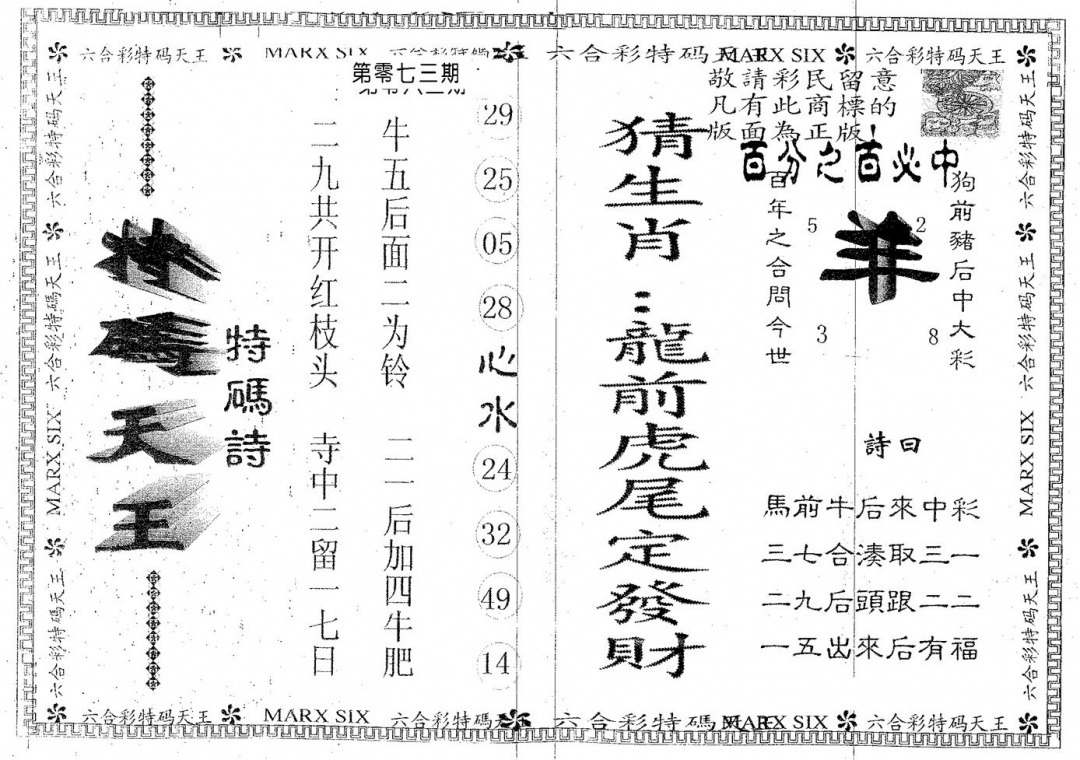 六合彩特码天王 MARX SIX 六合彩特碼天王 六合彩特码天王 MARX SIX 六合彩特码天王
第零七三期
敬請彩民留意
凡有此商標的
版面為正版!
百分之百必中
狗前豬后中大彩
羊
5 2
3 8
百年之合問今世
詩曰
馬前牛后來中彩
三七合湊取三一
二九后頭跟二二
一五出來后有福
猜生肖:龍前虎尾定發財
29
25
05
28
心水
24
32
49
14
牛五后面二为铃 二一后加四牛肥
二九共开红枝头 寺中二留一七日
特碼詩
特碼天王
六合彩特码天王 MARX SIX 六合彩特碼天王
六合彩特码天王 MARX SIX 六合彩特碼天王
六合彩特码天王 MARX SIX 六合彩特碼天王 六合彩特碼 MARX SIX 六合彩特码天王